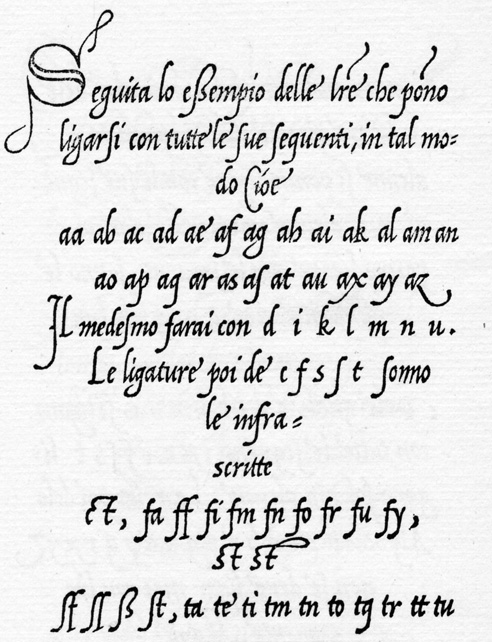 Seguita lo eßempio delle lr̃e che põno
ligarſi con tutte le ſue ſequenti, in tal mo=
do Cioe
aa ab ac ad ae af ag ah ai ak al am an
ao ap aq ar as aſ at au ax ay az
Il medeſmo farai con d i k l m n u.
Le ligature poi de c f s ſ t ſonno
le infra=
scritte
ct, fa ff fi fm fn fo fr fu fy,
st st
ſf ſſ ß ſt, ta te ti tm tn to tq tr tt tu